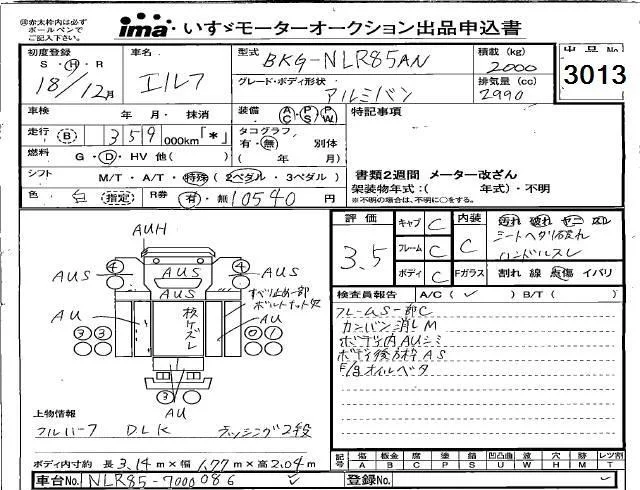 ㊟赤太枠内は必ず
ボールペンで
ご記入下さい。
ima いすゞモーターオークション出品申込書
初度登録 車名 型式 積載 (kg) 出品No
S・H・R 18/12月 エルフ BKG-NLR85AN 2000
グレード・ボディ形状 排気量 (cc)
アルミバン 2990 3013
車検 年 月・抹消 装備 AC・PS・PW 特記事項
走行 B 359 000km「*」 タコグラフ
有・無 別体
燃料 G・D・HV 他( ) ( 年 月)
シフト M/T・A/T・特殊 (2ペダル・3ペダル) 書類2週間 メーター改ざん
架装物年式:( 年式)・不明
色 白 (指定) R券 有・無 10540円 ※不明の場合は、不明に○をする。
評価 キャブ C 内装 汚れ 破れ ヤニ スレ
3.5 フレーム C C シートヘタリ破れ
ハンドルスレ
ボディ C Fガラス 割れ 線 点傷 イバリ
検査員報告 A/C( ✓ ) B/T( )
フレームS一部C
カンバン消しM
ボディ内AUシミ
ボディ後方枠AS
E/Gオイルベタ
AUH
4 4
AUS AUS AUS
AUS
すべり止め一部
ボルトナット欠
AU AU
枝ケズレ
3 3 0 1
3
AU
上物情報
フルハーフ DLK ラッシング2段
ボディ内寸約 長 3.14m×幅 1.77m×高 2.04m
記号 傷 板金 腐 塗 錆 凹凸曲 波 穴 跡 レツ割
A B C P S U W H M T
車台No. NLR85-7000086 ✓ 登録No. ✓